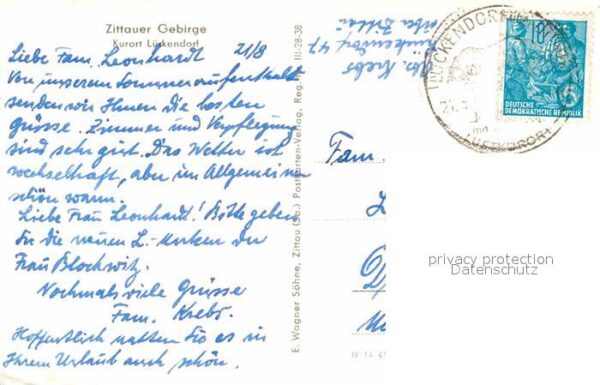 Zittauer Gebirge
Kurort Lückendorf
Liebe Fam. Leonhardt 21/8
Von unserem Sommeraufenthalt
senden wir Ihnen die besten
Grüsse. Zimmer und Verpflegung
sind sehr gut. Das Wetter ist
wechselhaft, aber im Allgemeinen
schön warm.
Liebe Frau Leonhard! Bitte geben
Sie die neuen L.-Marken der
Frau Blochwitz.
Nochmals viele Grüsse
Fam. Krebs.
Hoffentlich hatten Sie es in
Ihrem Urlaub auch schön.
E. Wagner Söhne, Zittau (Sa.) Postkarten-Verlag, Reg.-Nr. III-28-38
Krebs
Lückendorf 47
über Zittau
LÜCKENDORF
LUFTKURORT
DEUTSCHE
DEMOKRATISCHE REPUBLIK
5
Fam.
privacy protection
Datenschutz